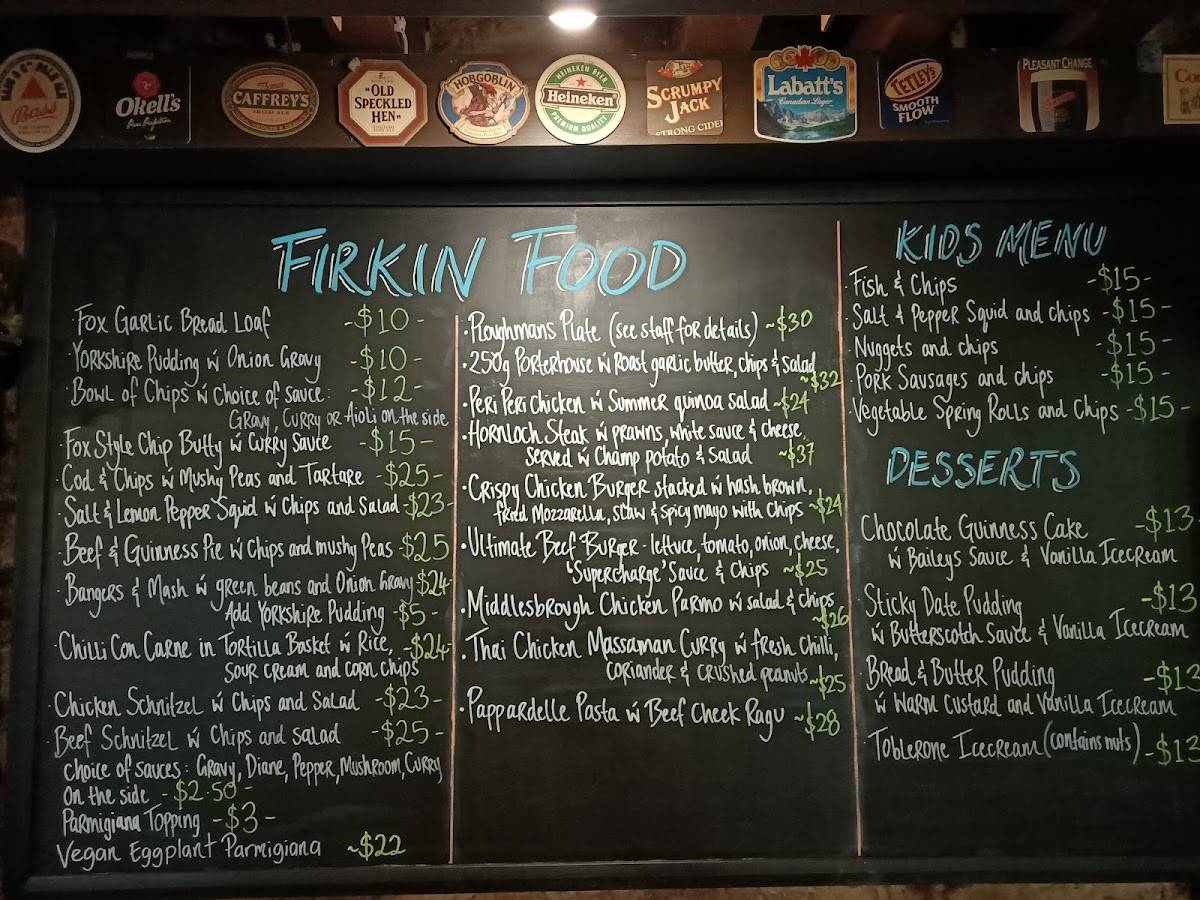 Bass
Okell's
CAFFREY'S
IRISH ALE
"OLD
SPECKLED
HEN"
HOBGOBLIN
HEINEKEN BEER
Heineken
PREMIUM QUALITY
SCRUMPY
JACK
STRONG CIDER
Labatt's
Canadian Lager
TETLEY'S
SMOOTH
FLOW
PLEASANT CHANGE
FIRKIN FOOD
· Fox Garlic Bread Loaf -$10-
· Yorkshire Pudding w Onion Gravy -$10-
· Bowl of Chips w choice of sauce: -$12-
Gravy, Curry or Aioli on the side
· Fox Style Chip Butty w Curry Sauce -$15-
· Cod & Chips w Mushy Peas and Tartare -$25-
· Salt & Lemon Pepper Squid w Chips and Salad -$23-
· Beef & Guinness Pie w Chips and mushy Peas $25
· Bangers & Mash w green beans and Onion Gravy $24-
Add Yorkshire Pudding -$5-
· Chilli Con Carne in Tortilla Basket w Rice, -$24-
sour cream and corn chips
· Chicken Schnitzel w Chips and Salad -$23-
Beef Schnitzel w Chips and Salad -$25-
Choice of sauces: Gravy, Diane, Pepper, Mushroom, Curry
On the side -$2.50-
Parmigiana Topping -$3-
Vegan Eggplant Parmigiana ~$22
· Ploughmans Plate (see staff for details) ~$30
· 250g Porterhouse w Roast garlic butter, chips & Salad
~$32
· Peri Peri Chicken w Summer quinoa salad ~$24
· Hornloch Steak w prawns, white sauce & cheese,
served w Champ potato & Salad ~$37
· Crispy Chicken Burger stacked w hash brown,
fried Mozzarella, slaw & spicy mayo with Chips ~$24
· Ultimate Beef Burger - lettuce, tomato, onion, cheese,
'Supercharge' Sauce & Chips ~$25
· Middlesbrough Chicken Parmo w salad & chips
~$26
· Thai Chicken Massaman Curry w fresh chilli,
coriander & crushed peanuts ~$25
· Pappardelle Pasta w Beef Cheek Ragu ~$28
KIDS MENU
· Fish & Chips -$15-
· Salt & Pepper Squid and chips -$15-
· Nuggets and chips -$15-
· Pork Sausages and chips -$15-
· Vegetable Spring Rolls and Chips -$15-
DESSERTS
Chocolate Guinness Cake -$13
w Baileys Sauce & Vanilla Icecream
· Sticky Date Pudding -$13
w Butterscotch Sauce & Vanilla Icecream
· Bread & Butter Pudding -$13
w Warm Custard and Vanilla Icecream
· Toblerone Icecream (contains nuts) -$13